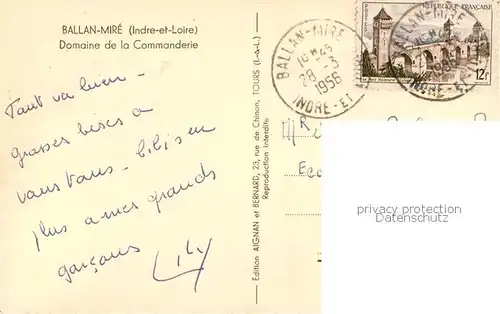 BALLAN-MIRÉ (Indre-et-Loire)
Domaine de la Commanderie
Tout va bien -
grosses bises a
vous tous -
plus a mes grands
garçons
Lily
Edition AIGNAN et BERNARD, 23, rue de Chinon, TOURS (I.-&-L.)
Reproduction Interdite
BALLAN-MIRE
28 -3
1956
INDRE-ET-
REPUBLIQUE FRANÇAISE
12F
BALLAN-MIRE
INDRE-ET-
privacy protection
Datenschutz